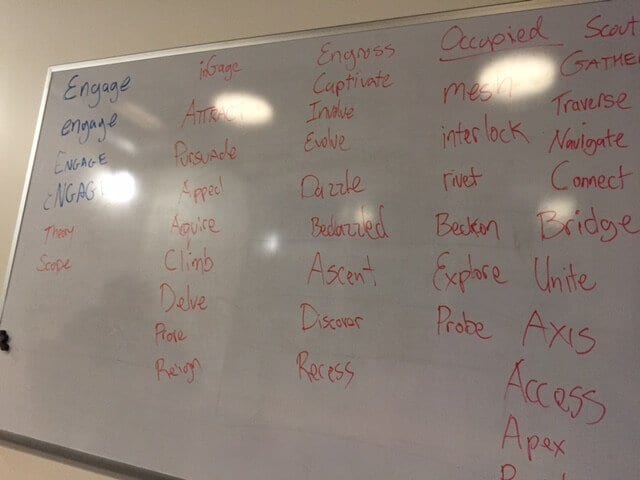 Engage
engage
ENGAGE
Theory
Scope
inGage
ATTRACT
Pursuade
Appeal
Aquire
Climb
Delve
Prove
Reign
Engross
Captivate
Involve
Evolve
Dazzle
Bedazzled
Ascent
Discover
Recess
Occupied
mesh
interlock
rivet
Beckon
Explore
Probe
Scout
GATHER
Traverse
Navigate
Connect
Bridge
Unite
AXIS
Access
Apex